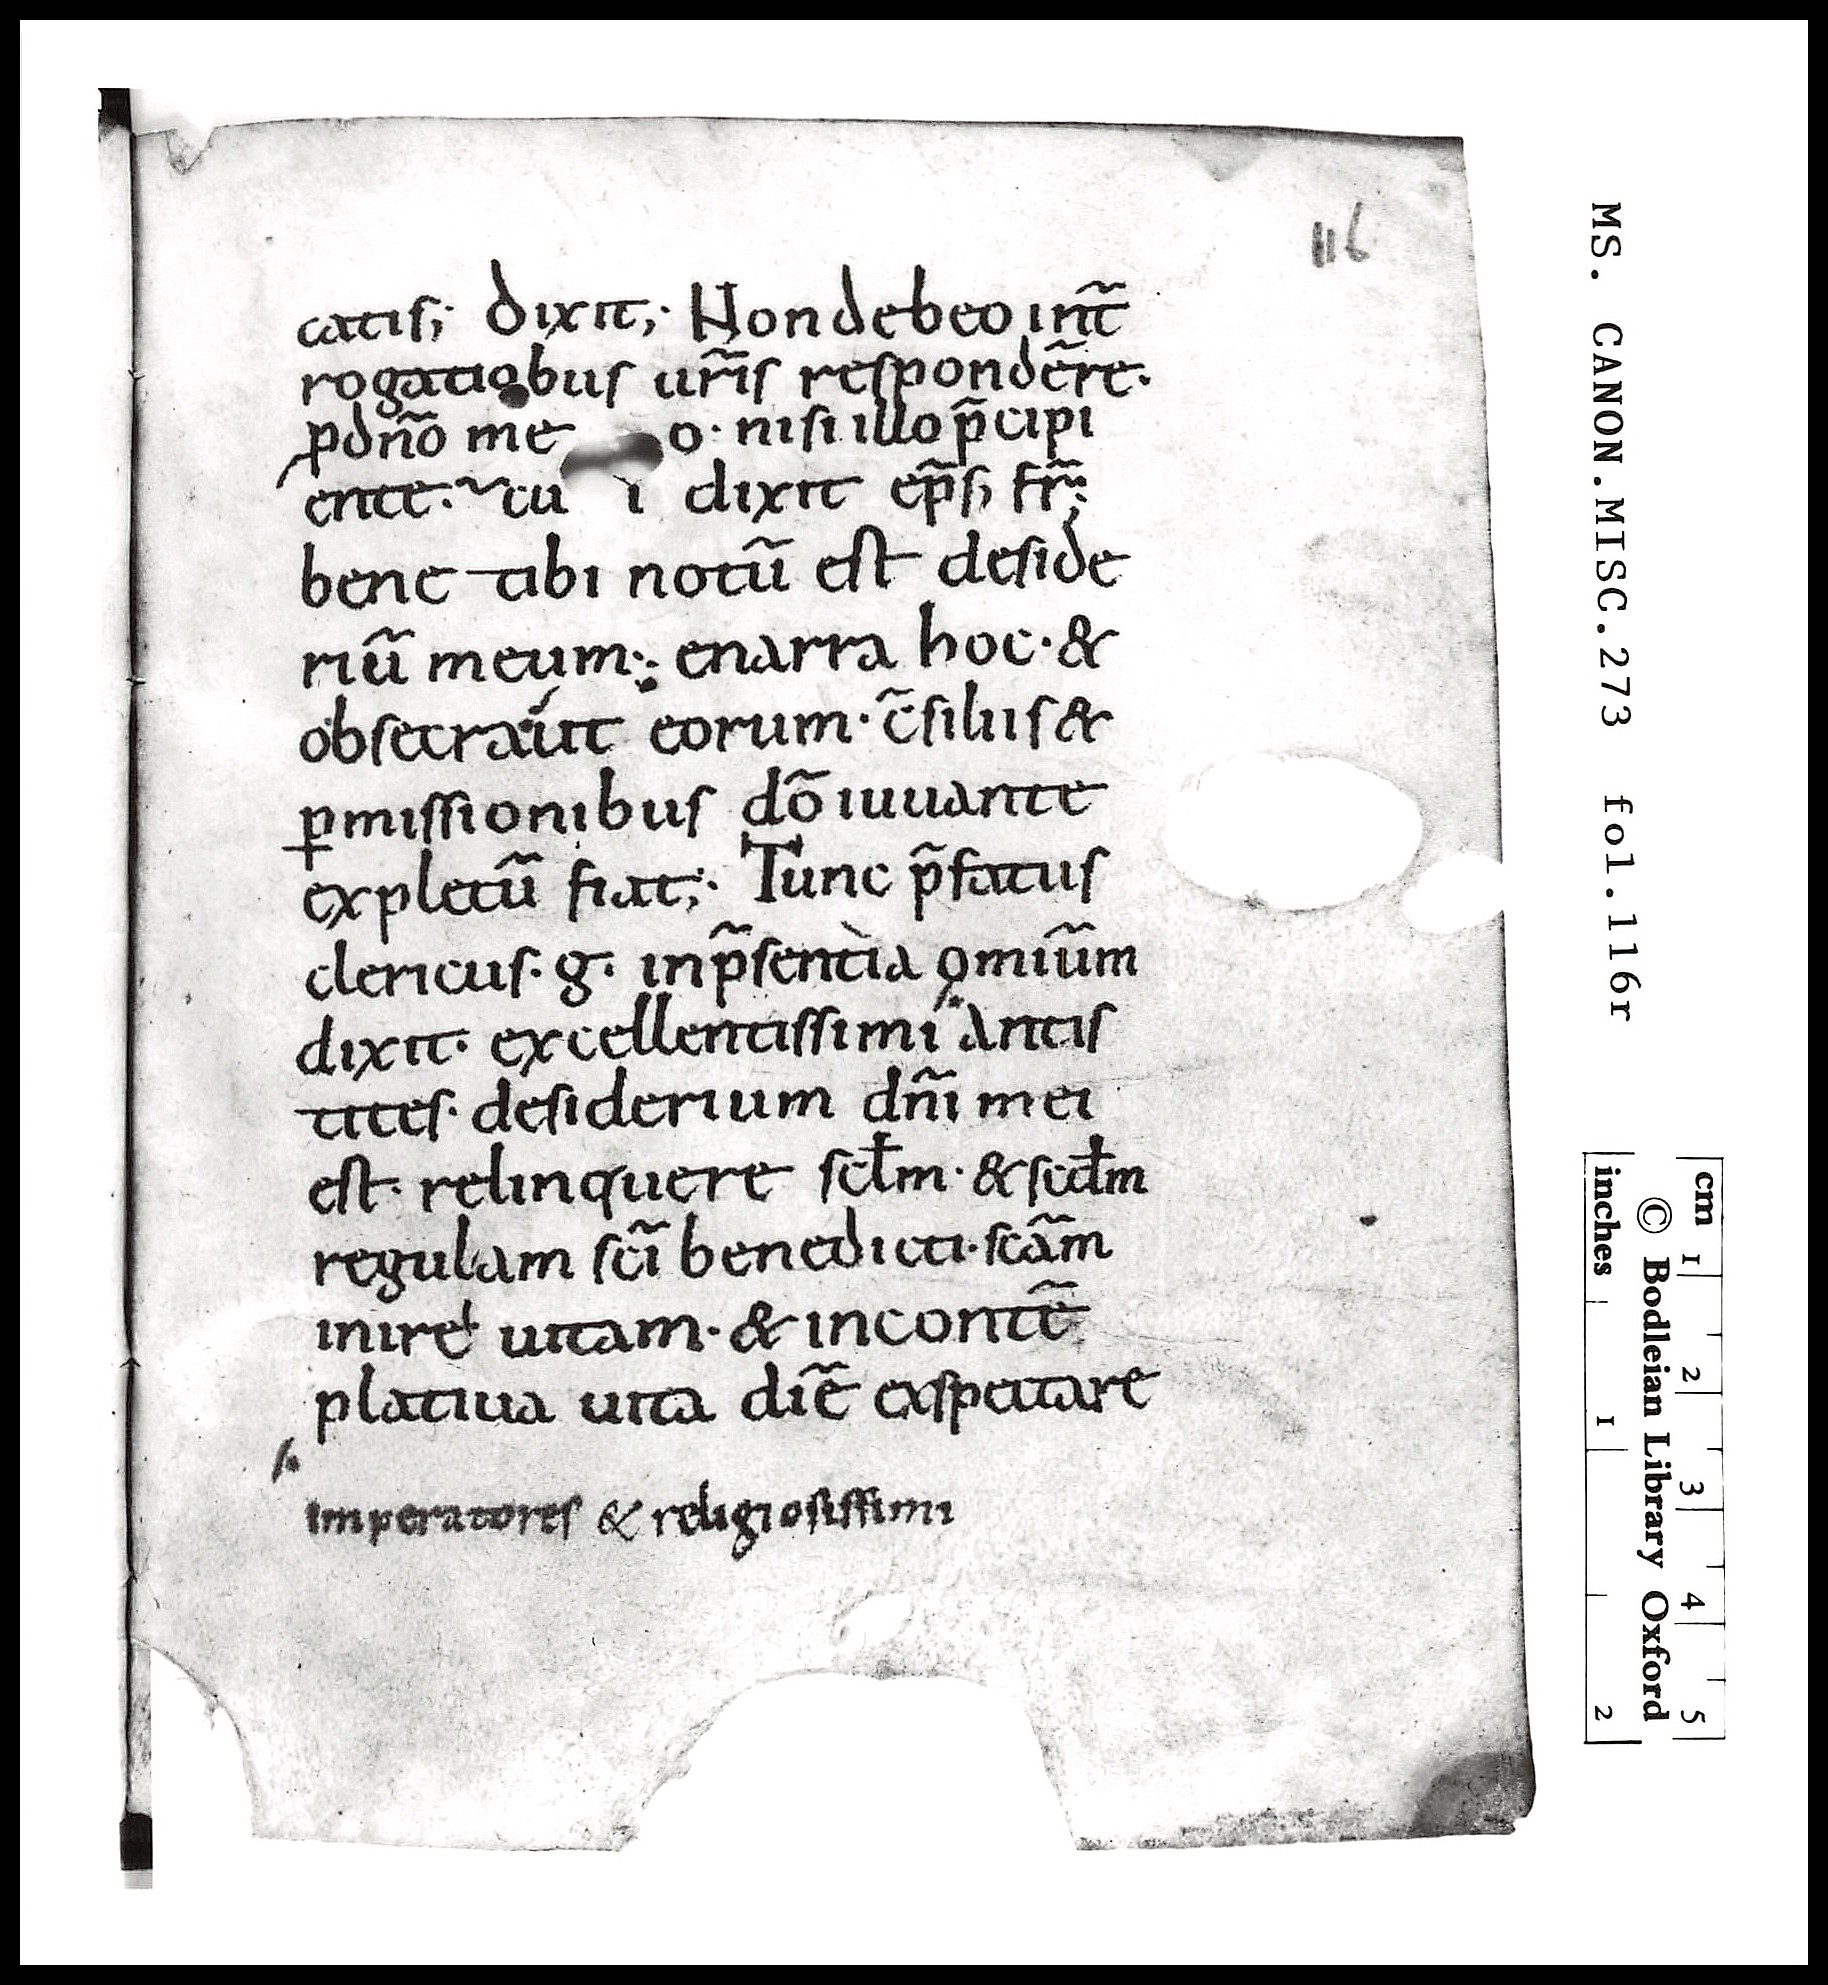 116
catis; dixit;· Non debeo int̃
rogatiobus ur̃is respondẽre·
p dño me o· nisi illo p̃cipi
ente· cu i dixit ep̃s; fr̃;
bene tibi notũ est deside
riũ meum; enarra hoc· &
obsecraut eorum· c̃siliis &
pmissionibus dõ iuuante
expletũ fiat;· Tunc p̃fatus
clericus· g· in p̃sentia omiũm
dixit· excellentissimi antis
tites· desiderium dñi mei
est· relinquere sclm· & scdm
regulam sc̃i benedicti· scãm
inire uitam· & in contẽ
platiua uita diẽ exspectare
imperatores & religiosissimi
MS. CANON.MISC.273 fol.116r
cm 1 2 3 4 5
© Bodleian Library Oxford
inches 1 2